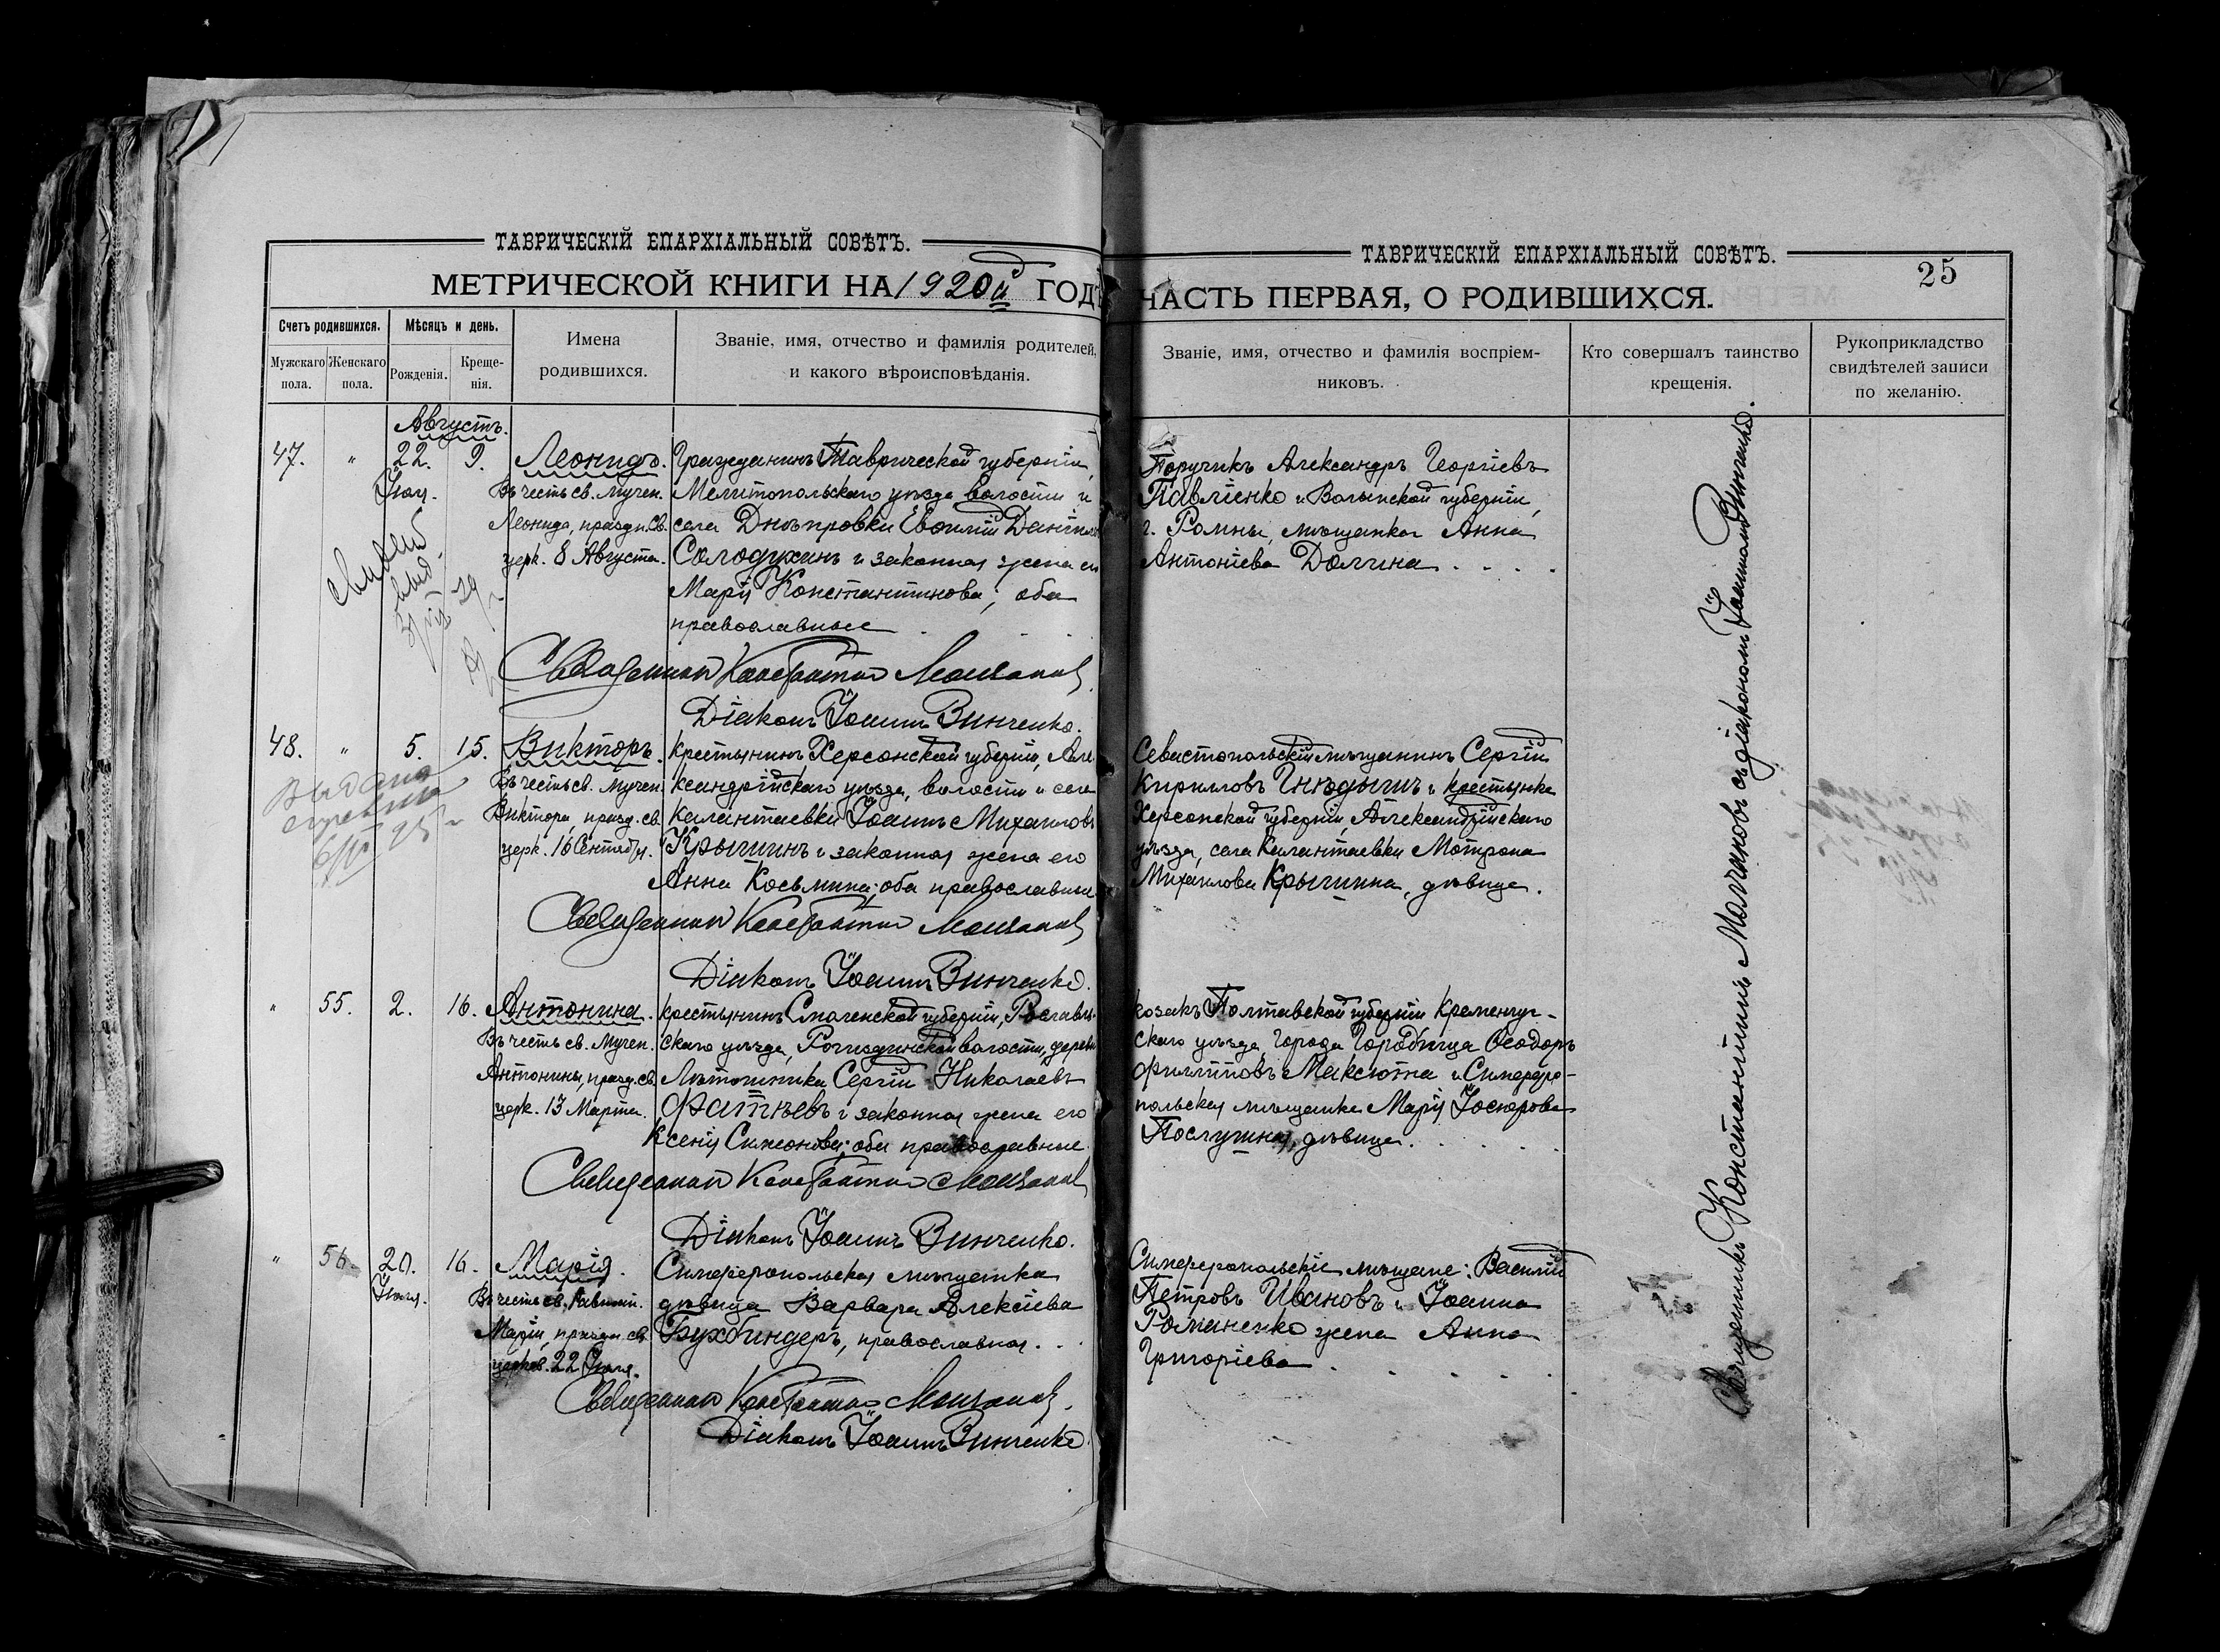 ТАВРИЧЕСКІЙ ЕПАРХІАЛЬНЫЙ СОВѢТЪ.
МЕТРИЧЕСКОЙ КНИГИ НА 1920й ГОДЪ
Счетъ родившихся.
Мужскаго пола.
Женскаго пола.
Мѣсяцъ и день.
Рожденія.
Креще-
нія.
Имена
родившихся.
Званіе, имя, отчество и фамилія родителей,
и какого вѣроисповѣданія.
Августъ.
47. " 22. 9. Леонидъ. Гражданинъ Таврической губерніи,
Въ честь св. Мучен. Мелитопольскаго уѣзда волости и
Леонида, праздн. св. села Днѣпровки Евѳимій Даніиловъ
церк. 8 Августа. Солодухинъ и законная жена его
Марія Константинова; оба
православные
Священникъ Константинъ Молчановъ
Діаконъ Іоаннъ Винченко.
48. " 5. 15. Викторъ. Крестьянинъ Херсонской губерніи, Але-
Въ честь св. Мучен. ксандрійскаго уѣзда, волости и села
Виктора, празд. св. Калантаевки Іоаннъ Михаиловъ
церк. 16 Сентября. Крыгинъ и законная жена его
Анна Косьмина; оба православные
Выдана
справка
Священникъ Константинъ Молчановъ
Діаконъ Іоаннъ Винченко.
" 55. 2. 16. Антонина. Крестьянинъ Смоленской губерніи, Рославль-
Въ честь св. Мучен. скаго уѣзда, волости, деревни
Антонины, празд. св. Сергій Николаевъ
церк. 13 Марта. Фатѣевъ и законная жена его
Ксенія Симеонова; оба православные
Священникъ Константинъ Молчановъ
Діаконъ Іоаннъ Винченко.
" 56. 20. 16. Марія. Симферопольская мѣщанка
Іюля. Въ честь св. Равноап. дѣвица Варвара Алексіева
Маріи, праздн. св. Бухбиндеръ, православная.
церков. 22 Іюля.
Священникъ Константинъ Молчановъ.
Діаконъ Іоаннъ Винченко.
ТАВРИЧЕСКІЙ ЕПАРХІАЛЬНЫЙ СОВѢТЪ.
25
ЧАСТЬ ПЕРВАЯ, О РОДИВШИХСЯ.
Званіе, имя, отчество и фамилія воспріем-
никовъ.
Кто совершалъ таинство
крещенія.
Рукоприкладство
свидѣтелей записи
по желанію.
Поручикъ Александръ Георгіевъ
Павленко и Волынской губерніи,
г. Ромны, мѣщанка Анна
Антоніева Долина
Севастопольскій мѣщанинъ Сергій
Кирилловъ Гнѣдычъ и крестьянка
Херсонской губерніи, Александрійскаго
уѣзда, села Калантаевки Мотрона
Михаилова Крыгина, дѣвица.
козакъ Полтавской губерніи Кременчуг-
скаго уѣзда, города Ѳеодоръ
Филипповъ Максюта и Симферо-
польская мѣщанка Марія
дѣвица.
Симферопольскіе мѣщане: Василій
Петровъ Ивановъ и Іоанна
Романенко жена Анна
Григоріева
Священникъ Константинъ Молчановъ съ діакономъ Іоанномъ Винченко.